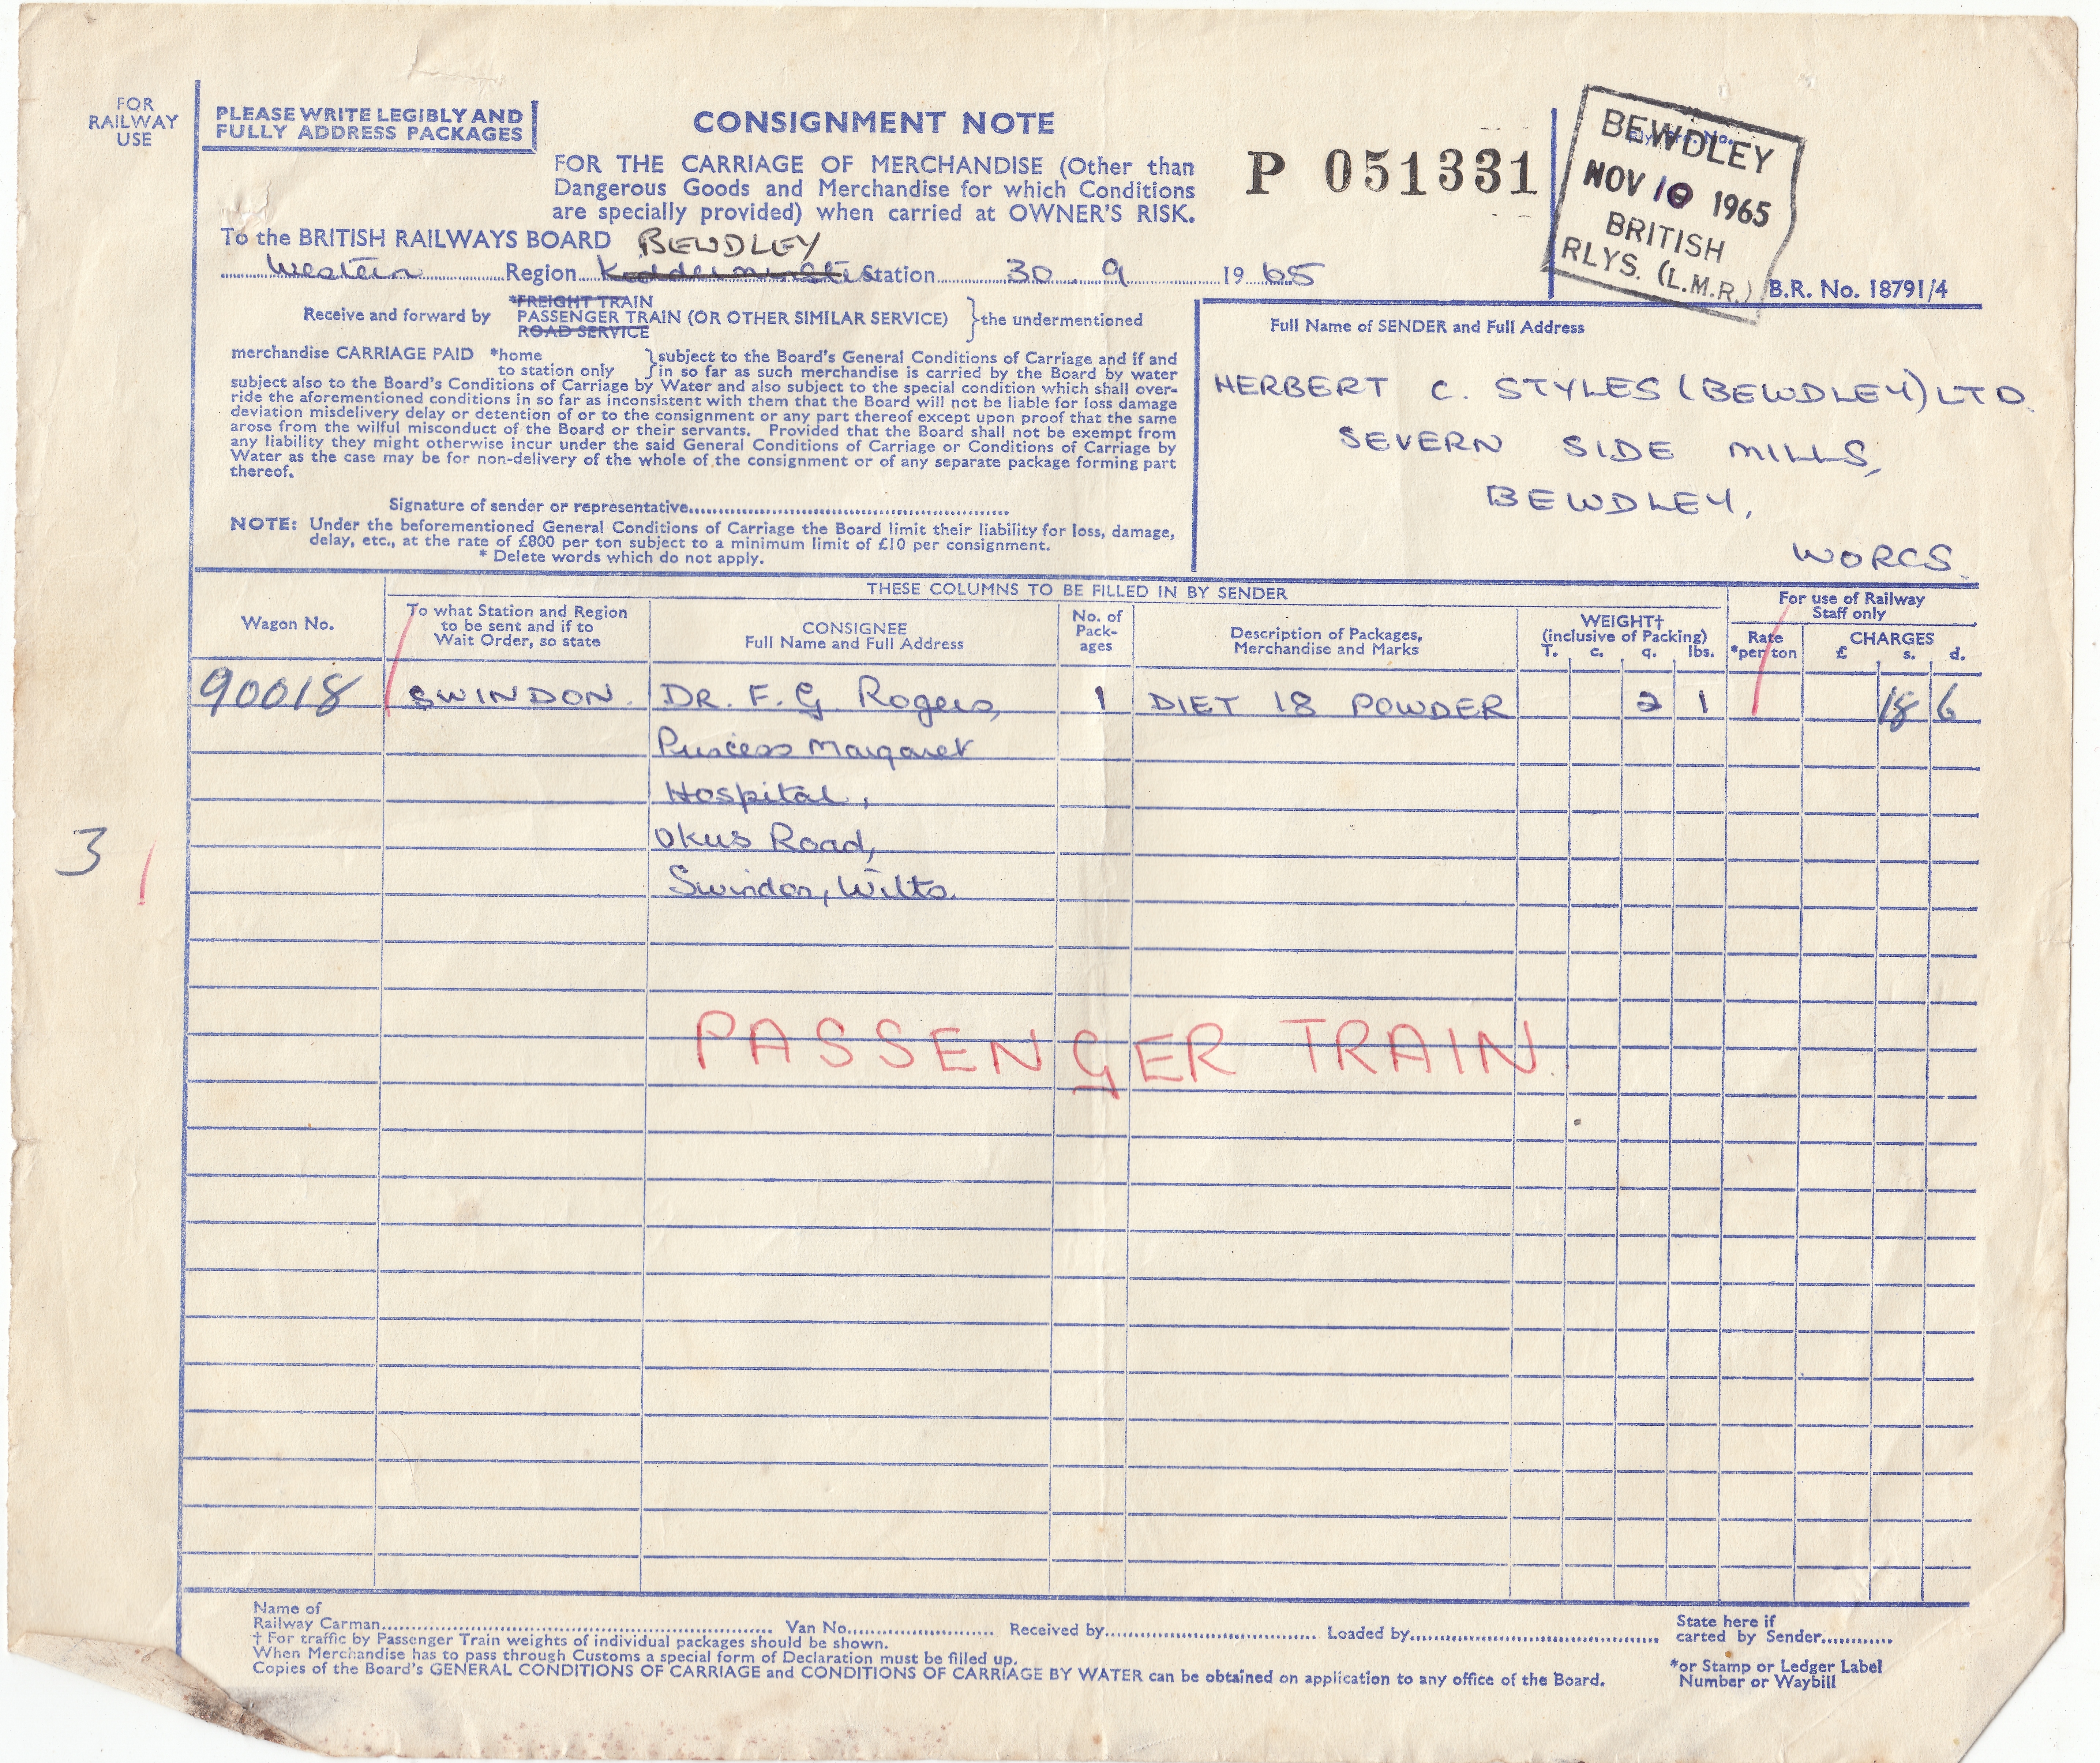 FOR
RAILWAY
USE
PLEASE WRITE LEGIBLY AND
FULLY ADDRESS PACKAGES
CONSIGNMENT NOTE
FOR THE CARRIAGE OF MERCHANDISE (Other than
Dangerous Goods and Merchandise for which Conditions
are specially provided) when carried at OWNER'S RISK.
P 051331
BEWDLEY
NOV 10 1965
BRITISH
RLYS. (L.M.R.)
B.R. No. 18791/4
To the BRITISH RAILWAYS BOARD BEWDLEY
Western Region Kidderminster Station 30 . 9 1965
*FREIGHT TRAIN
Receive and forward by PASSENGER TRAIN (OR OTHER SIMILAR SERVICE) } the undermentioned
ROAD SERVICE
merchandise CARRIAGE PAID *home } subject to the Board's General Conditions of Carriage and if and
to station only } in so far as such merchandise is carried by the Board by water
subject also to the Board's Conditions of Carriage by Water and also subject to the special condition which shall over-
ride the aforementioned conditions in so far as inconsistent with them that the Board will not be liable for loss damage
deviation misdelivery delay or detention of or to the consignment or any part thereof except upon proof that the same
arose from the wilful misconduct of the Board or their servants. Provided that the Board shall not be exempt from
any liability they might otherwise incur under the said General Conditions of Carriage or Conditions of Carriage by
Water as the case may be for non-delivery of the whole of the consignment or of any separate package forming part
thereof.
Signature of sender or representative
NOTE: Under the beforementioned General Conditions of Carriage the Board limit their liability for loss, damage,
delay, etc., at the rate of £800 per ton subject to a minimum limit of £10 per consignment.
* Delete words which do not apply.
Full Name of SENDER and Full Address
HERBERT C. STYLES (BEWDLEY) LTD.
SEVERN SIDE MILLS,
BEWDLEY,
WORCS.
THESE COLUMNS TO BE FILLED IN BY SENDER
Wagon No.
To what Station and Region
to be sent and if to
Wait Order, so state
CONSIGNEE
Full Name and Full Address
No. of
Pack-
ages
Description of Packages,
Merchandise and Marks
WEIGHT†
(inclusive of Packing)
T. c. q. lbs.
For use of Railway
Staff only
Rate
*per ton
CHARGES
£ s. d.
90018 SWINDON. DR. F. G Rogers, 1 DIET 18 POWDER 2 1 18 6
Princess Margaret
Hospital,
Okus Road,
Swindon, Wilts.
3
PASSENGER TRAIN
Name of
Railway Carman Van No. Received by Loaded by
State here if
carted by Sender
† For traffic by Passenger Train weights of individual packages should be shown.
When Merchandise has to pass through Customs a special form of Declaration must be filled up.
Copies of the Board's GENERAL CONDITIONS OF CARRIAGE and CONDITIONS OF CARRIAGE BY WATER can be obtained on application to any office of the Board.
*or Stamp or Ledger Label
Number or Waybill